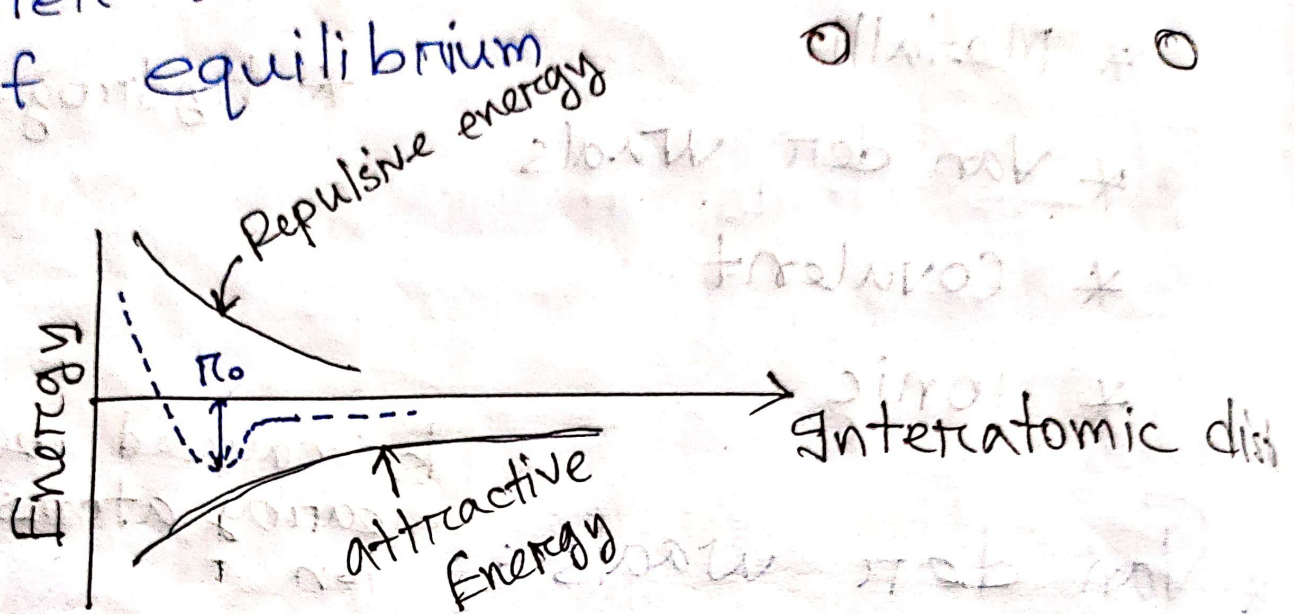 f equilibrium
Repulsive energy
r₀
Energy
Interatomic dis
attractive
Energy